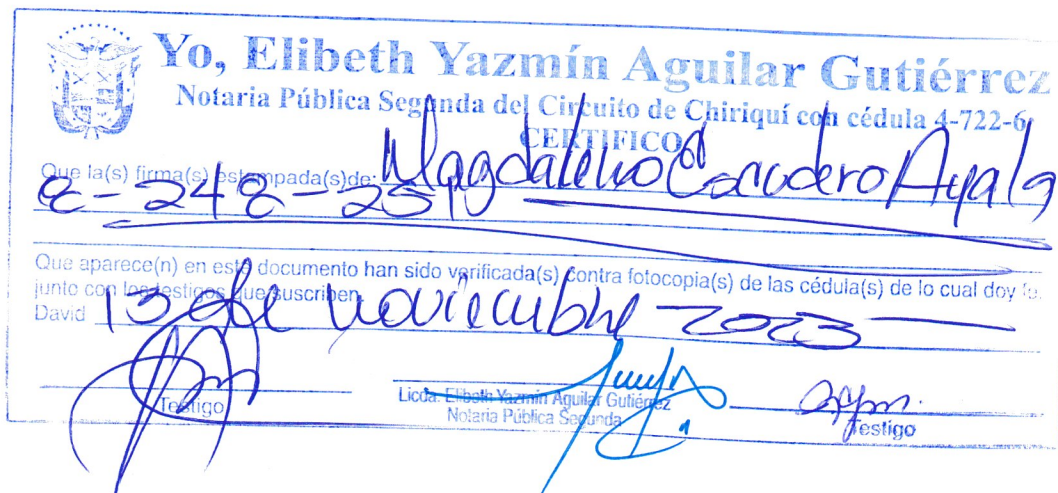 Yo, Elibeth Yazmín Aguilar Gutiérrez
Notaria Pública Segunda del Circuito de Chiriquí con cédula 4-722-6
CERTIFICO
Que la(s) firma(s) estampada(s)de: Magdaleno Escudero Ayala
Que aparece(n) en este documento han sido verificada(s) contra fotocopia(s) de las cédula(s) de lo cual doy fe.
junto con los testigos que suscriben.
David 13 de noviembre 2023
Testigo
Licda. Elibeth Yazmín Aguilar Gutiérrez
Notaria Pública Segunda
Testigo